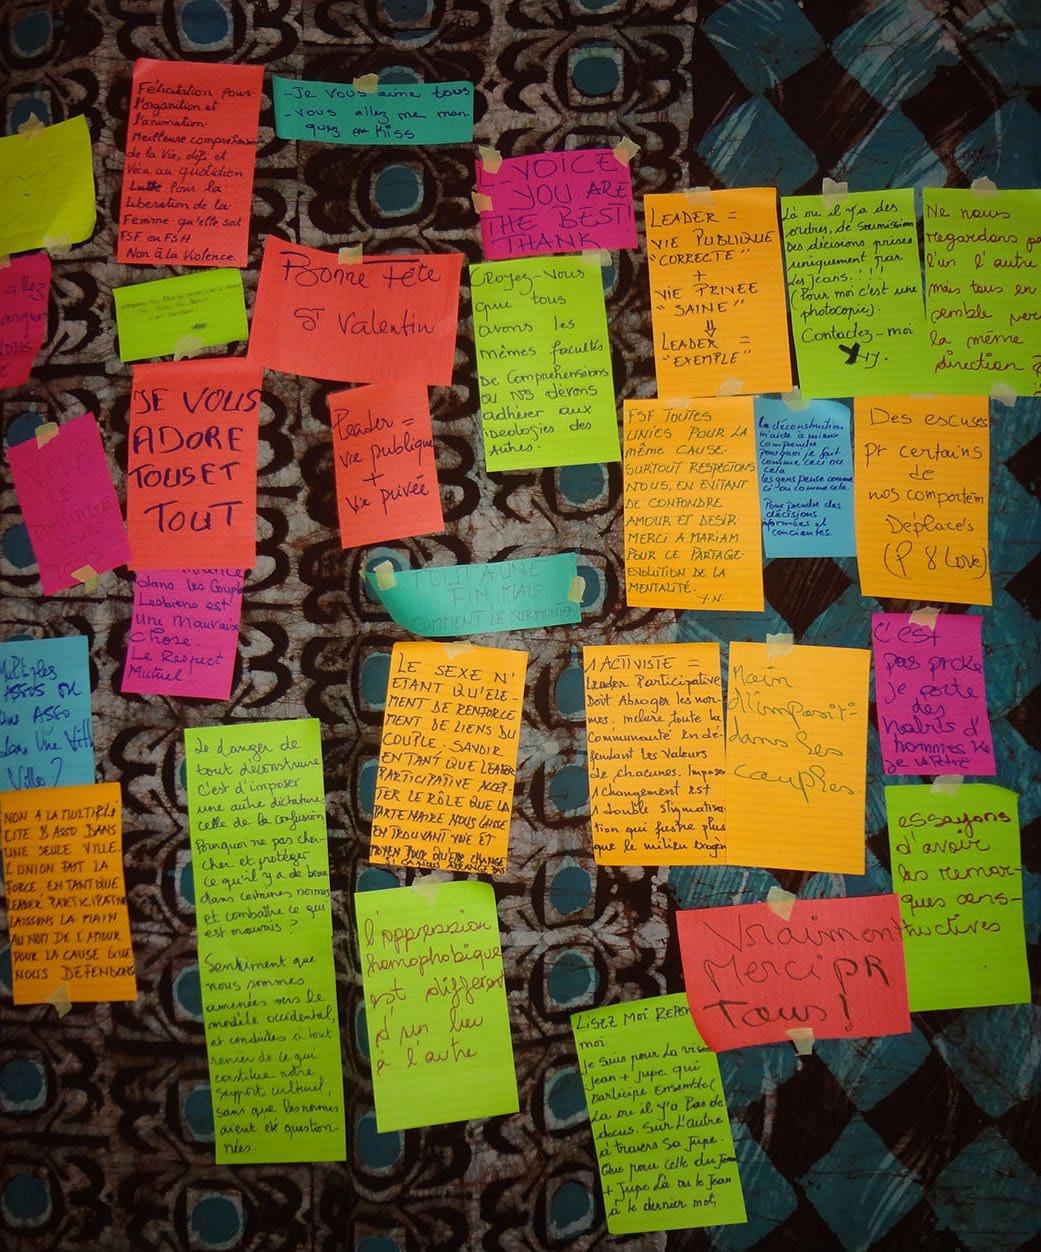 Félicitation pour
l'organition et
l'animation.
Meilleure compréhension
de la Vie, défi et
Vécu au quotidien
Lutte pour la
Liberation de la
Femme qu'elle soit
FSF ou FSH
Non à la Violence
-Je vous aime tous
-Vous allez me man-
quez Kiss
VOICE
YOU ARE
THE BEST!
THANK
LEADER =
VIE PUBLIQUE
"CORRECTE"
+
VIE PRIVÉE
"SAINE"
⇓
LEADER =
"EXEMPLE"
Là où il y a des
ordres, de soumission
Des décisions prises
uniquement par
les Jeans. !!!
(Pour moi c'est une
photocopie).
Contactez-moi
Ne nous
regardons pas
l'un l'autre
mais tous en
semble vers
la même
direction
Bonne Fête
St Valentin
Croyez-Vous
que tous
avons les
mêmes facultés
De Compréhensions
ou NS devons
adhérer aux
idéologies des
Autres.
JE VOUS
ADORE
TOUS ET
TOUT
Leader =
vie publique
+
Vie privée
FSF TOUTES
UNIES POUR LA
MÊME CAUSE.
SURTOUT RESPECTONS
NOUS, EN ÉVITANT
DE CONFONDRE
AMOUR ET DESIR.
MERCI A MARIAM
POUR CE PARTAGE.
EVOLUTION DE LA
MENTALITÉ.
Y.N.
La déconstruction
m'aide à mieux
comprendre
pourquoi je fait
comme ceci ou
cela
les gens pense comme
ci ou comme cela.
Pour prendre des
décisions
informées et
concientes.
Des escuses
pr certains
de
nos comportem
Déplacés
(P & Love)
dans les Couple
Lesbiens est
Une Mauvaise
chose.
Le Respect
Mutuel!
TOUT A UNE
FIN, MAIS
COMMENT LE SURMONTER
ASSOS OU
Une ASSO
dans Une
Ville?
NON A LA MULTIPLI
CITÉ D'ASSO DANS
UNE SEULE VILLE.
L'UNION FAIT LA
FORCE. EN TANT QUE
LEADER PARTICIPATIVE
LAISSONS LA MAIN
AU NOM DE L'AMOUR
POUR LA CAUSE QUE
NOUS DEFENDONS
Le danger de
tout déconstruire
c'est d'imposer
une autre dictature,
celle de la confusion
Pourquoi ne pas cher-
cher et protéger
ce qu'il y a de beau
dans certaines normes
et combattre ce qui
est mauvais ?
Sentiment que
nous sommes
amenées vers le
modèle occidental,
et conduites à tout
renier de ce qui
constitue notre
support culturel,
sans que les normes
aient été question-
nées.
LE SEXE N'
ETANT QU'ÉLE-
MENT DE RENFORCE
MENT DE LIENS DU
COUPLE. SAVOIR
EN TANT QUE LEADER
PARTICIPATIVE ACCEP
TER LE RÔLE QUE LA
PARTENAIRE NOUS LAISSE
EN TROUVANT VOIE ET
MOYEN POUR QU'ELLE CHANGE
SI ÇA NOUS ARRANGE PAS
1 ACTIVISTE =
Leader Participative
Doit Abroger les nor-
mes. inclure toute la
Communauté en dé-
fendant les Valeurs
de chacunes. Imposer
1 changement est
1 double stigmatisa-
tion qui frustre plus
que le milieu exogen
Moin
d'imposit-
dans les
couples.
C'est
pas parceke
je porte
des
habits d'
hommes ke
je
essayons
d'avoir
les remar-
ques cons-
tructives
l'oppression
homophobique
est different
d'un lieu
à l'autre
Vraiment
Merci PR
Tous!
LISEZ MOI
moi
Je suis pour la
jean + jupe qui
participe Ensemble(
Là où il y'a Pas de
deçus. Sur L'autre
à travers sa jupe.
Que pour celle du Jean
+ Jupe Là où le Jean
à le dernier mot